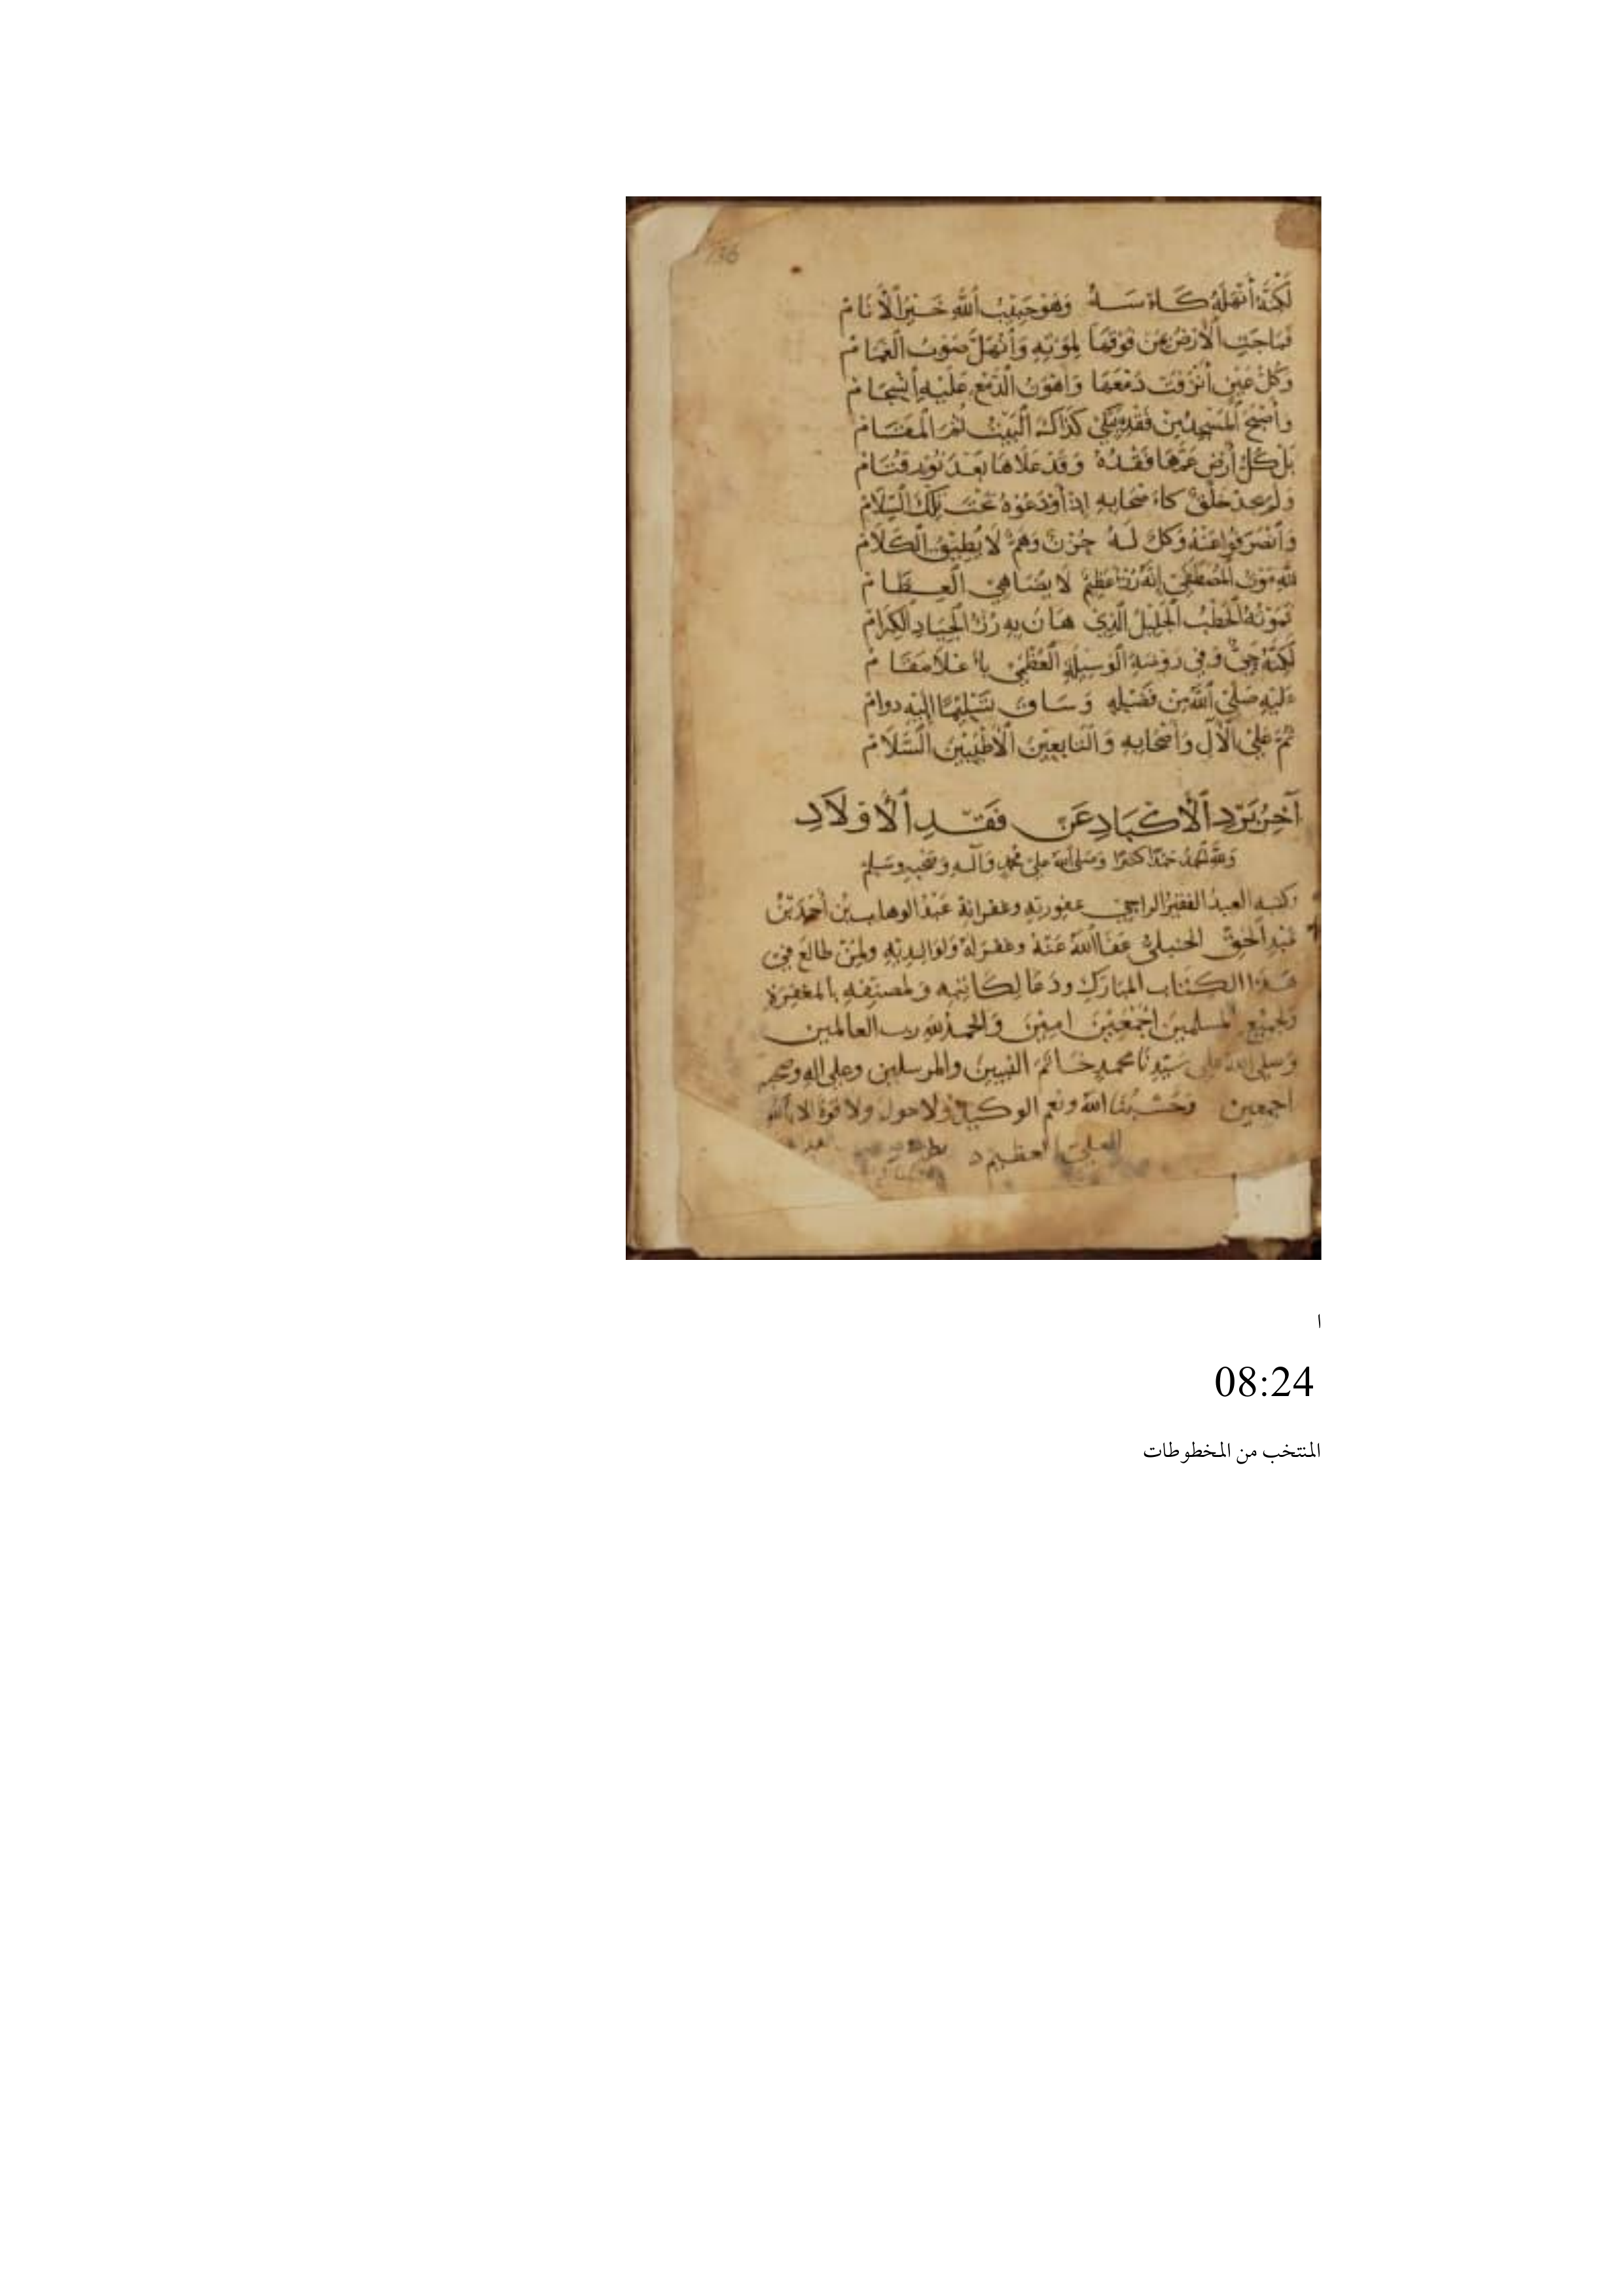 136
لَكِنَّهُ أَنْهَلَهُ كَاسَهُ وَهْوَ حَبِيْبُ ٱللَّهِ خَيْرُ ٱلْأَنَامْ
فَمَاجَتِ ٱلْأَرْضُ مِنْ فَوْقِهَا لِمَوْتِهِ وَٱنْهَلَّ صَوْبُ الْغَمَامْ
وَكُلُّ عَيْنٍ أَنْزَفَتْ دَمْعَهَا وَاهْوَنُ الدَّمْعِ عَلَيْهِ ٱنْسِجَامْ
وَأَصْبَحَ ٱلْمَسْجِدُ مِنْ فَقْدِهِ يَبْكِي كَذَاكَ ٱلْبَيْتُ ثُمَّ الْمَقَامْ
بَلْ كُلُّ أَرْضٍ عَمَّهَا فَقْدُهُ وَقَدْ عَلَاهَا بَعْدَ نُوْرٍ قَتَامْ
وَلَمْ يَجِدْ خَلْقٌ كَاصْحَابِهِ إِذْ أَوْدَعُوْهُ تَحْتَ تِلْكَ السِّلَامْ
وَٱنْصَرَفُوا عَنْهُ وَكُلٌّ لَهُ حُزْنٌ وَهَمٌّ لَا يُطِيْقُ ٱلْكَلَامْ
لِلَّهِ مَوْتُ الْمُصْطَفَى إِنَّهُ رُزْءٌ عَظِيْمٌ لَا يُضَاهِي الْعِظَامْ
فَمَوْتُهُ ٱلْخَطْبُ ٱلْجَلِيْلُ الَّذِيْ هَانَ بِهِ رُزْءُ الْجِيَادِ الْكِرَامْ
لَكِنَّهُ حَيٌّ وَفِي رَوْضَةِ الْوَسِيْلَةِ الْعُظْمَى بِاعْلَا مَقَامْ
عَلَيْهِ صَلَّى ٱللَّهُ مِنْ فَضْلِهِ وَسَاقَ تَسْلِيْمًا إِلَيْهِ دوامْ
ثُمَّ عَلَى الْآلِ وَأَصْحَابِهِ وَالتَّابِعِيْنَ الْأَطْيَبِيْنَ السَّلَامْ
آخِرُ بَرْدِ ٱلْأَكْبَادِ عَنْ فَقْدِ ٱلْأَوْلَادِ
وَلِلَّهِ الْحَمْدُ حَمْدًا كَثِيْرًا وَصَلَى ٱللَّهُ عَلَى مُحَمَّدٍ وَآلِهِ وَصَحْبِهِ وَسَلِّمْ
وكتبه العبدُ الفقيْرُ الراجي عفو ربِّهِ وغفرانِهُ عَبْدُ الوهاب بْن أَحْمَدَ بْنْ
عَبْدِ ٱلْحَقِّ الحنبلي عَفَا ٱللَّهُ عَنْهُ وغفرَ لَهُ وَلِوَالِدِيْهِ ولِمَنْ طالعَ فِيْ
هَذا الكتابِ المبَارَكِ ودعَا لِكَاتِبِهِ وَلمصنِفِهِ بالمغفِرَةِ
وَلِجَمِيْعِ المسلمينَ اجْمَعِيْنَ امِيْنَ وَالْحَمْدُ للهِ رب العالمين
وَصلى اللهُ على سَيِّدِنَا محمدٍ خَاتَمِ النبيين والمرسلين وعلى الهِ وصحبه
اجمعين وَحَسْبُنَا اللهُ ونعم الوكيل ولا حول ولا قوة الا بالله
العلي العظيم
ا
08:24
المنتخب من المخطوطات